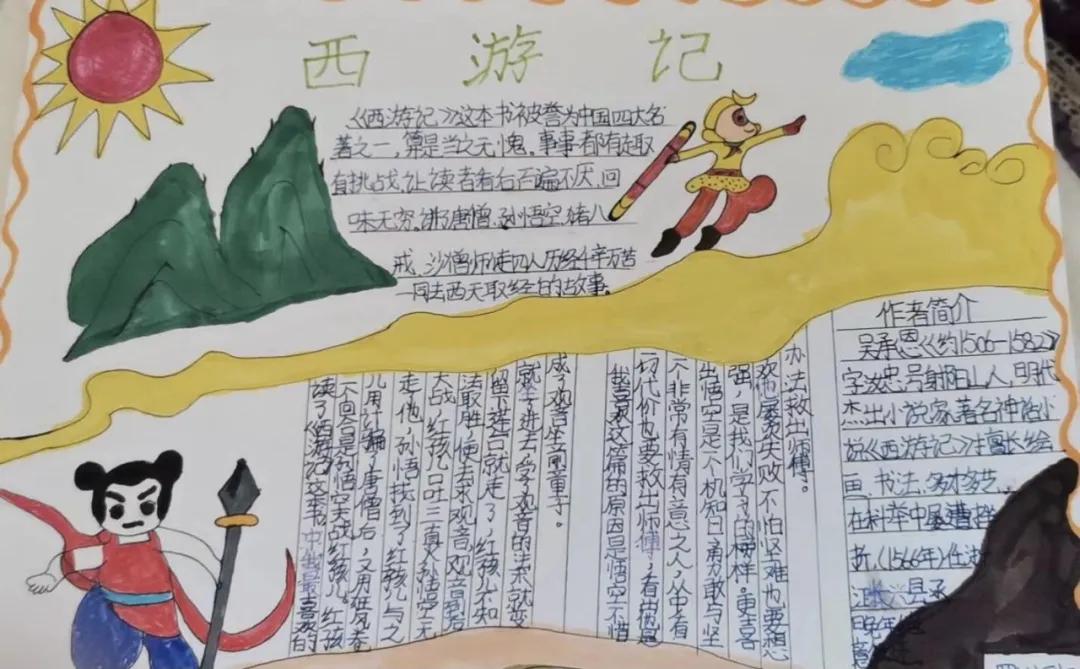 西游记
《西游记》这本书被誉为中国四大名
著之一,算是当之无愧。事事都有趣
有挑战,让读者看后百遍不厌,回
味无穷。讲了唐僧、孙悟空、猪八
戒、沙僧师徒四人历经千辛万苦
一同去西天取经的故事。
读了《西游记》文章中我最喜欢的
一回合是孙悟空大战红孩儿。红孩
儿用红骗唐僧后,又用旋风卷
走了他,孙悟找到了红孩与之
大战,红孩儿口吐三真火孙悟空无
法取胜,便去求观音,观音到后
留下莲台就走了,红孩儿不知
就坐进去学观音的就变
成了观音坐前童子。
我喜欢这篇的原因是悟空不惜
切代价也要救出师傅,看出他是
个非常有情有意之人,从中看
出悟空是个机知日勇敢与坚
强,是我们学习的榜样。更喜
欢他屡屡失败不怕坚难也要想
办法救出师傅。
作者简介
吴承恩《约1506—1582》
字汝忠,号射阳山人,明代
杰出小说家,著名神话小
说《西游记》擅长绘
画、书法、多才多艺
在科举中屡遭挫
折,(1566年)任浙
江长兴县承
晚年